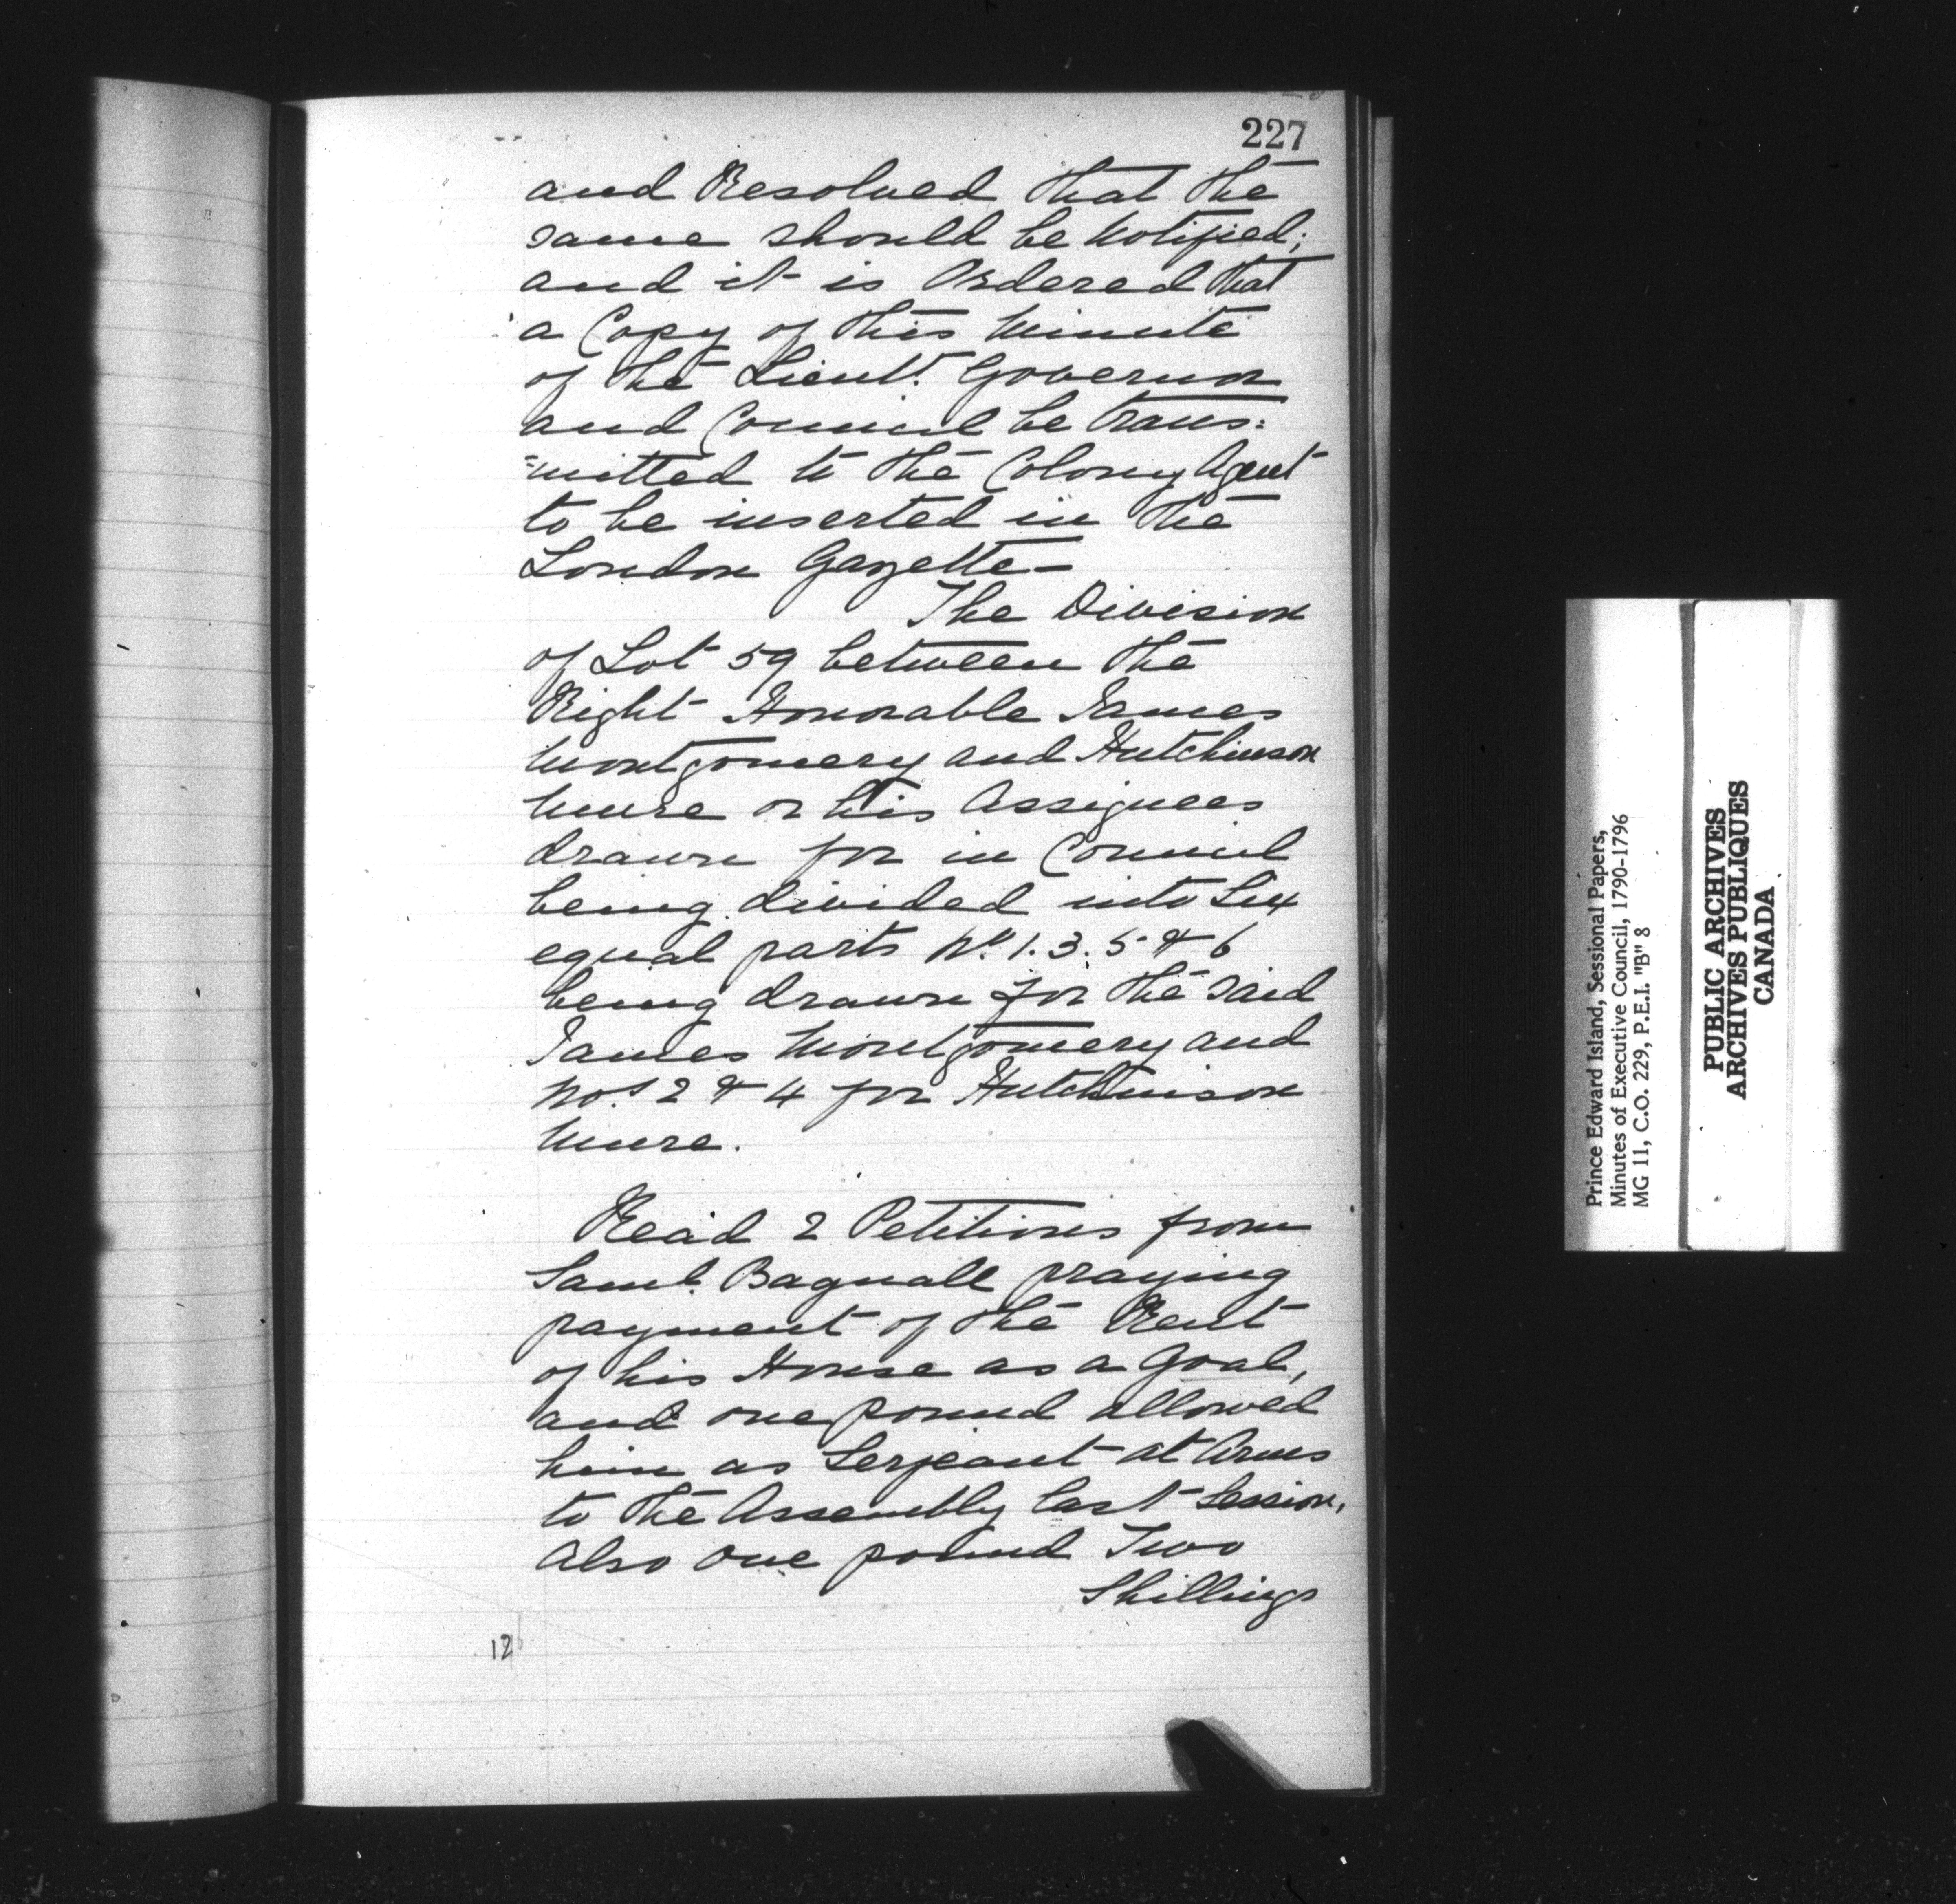 227
and Resolved that the
same should be Notified;
and it is Ordered that
a Copy of this Minute
of the Lieut. Governor
and Council be trans=
=mitted to the Colony Agent
to be inserted in the
London Gazette—
The Division
of Lot 59 between the
Right Honorable James
Montgomery and Hutchinson
Mure or his Assignees
drawn for in Council
being divided into Six
equal parts No. 1. 3. 5 & 6
being drawn for the said
James Montgomery and
Nos 2 & 4 for Hutchinson
Mure.
Read 2 Petitions from
Saml. Bagnall praying
payment of the Rent
of his House as a Goal,
and one pound allowed
him as Serjeant at Arms
to the Assembly last Session,
Also one pound Two
Shillings
Prince Edward Island, Sessional Papers,
Minutes of Executive Council, 1790-1796
MG 11, C.O. 229, P.E.I. "B" 8
PUBLIC ARCHIVES
ARCHIVES PUBLIQUES
CANADA